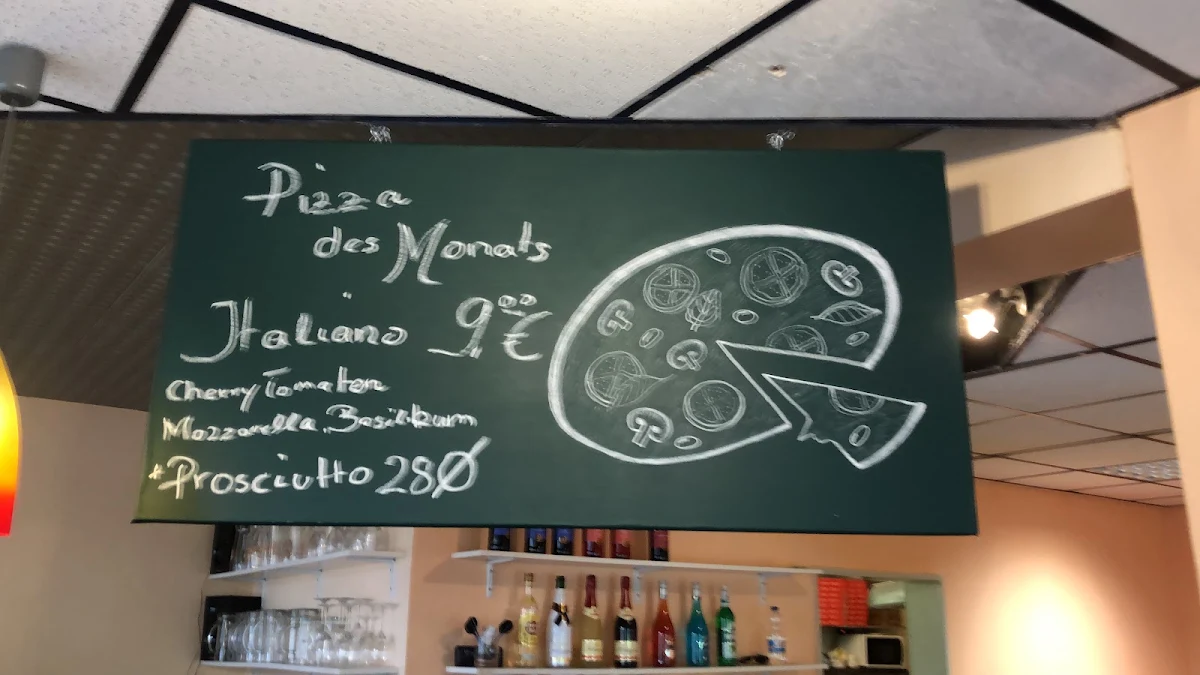 Pizza
des Monats
Italiano 9.00 €
Cherry Tomaten
Mozzarella, Basilikum
+Prosciutto 28Ø